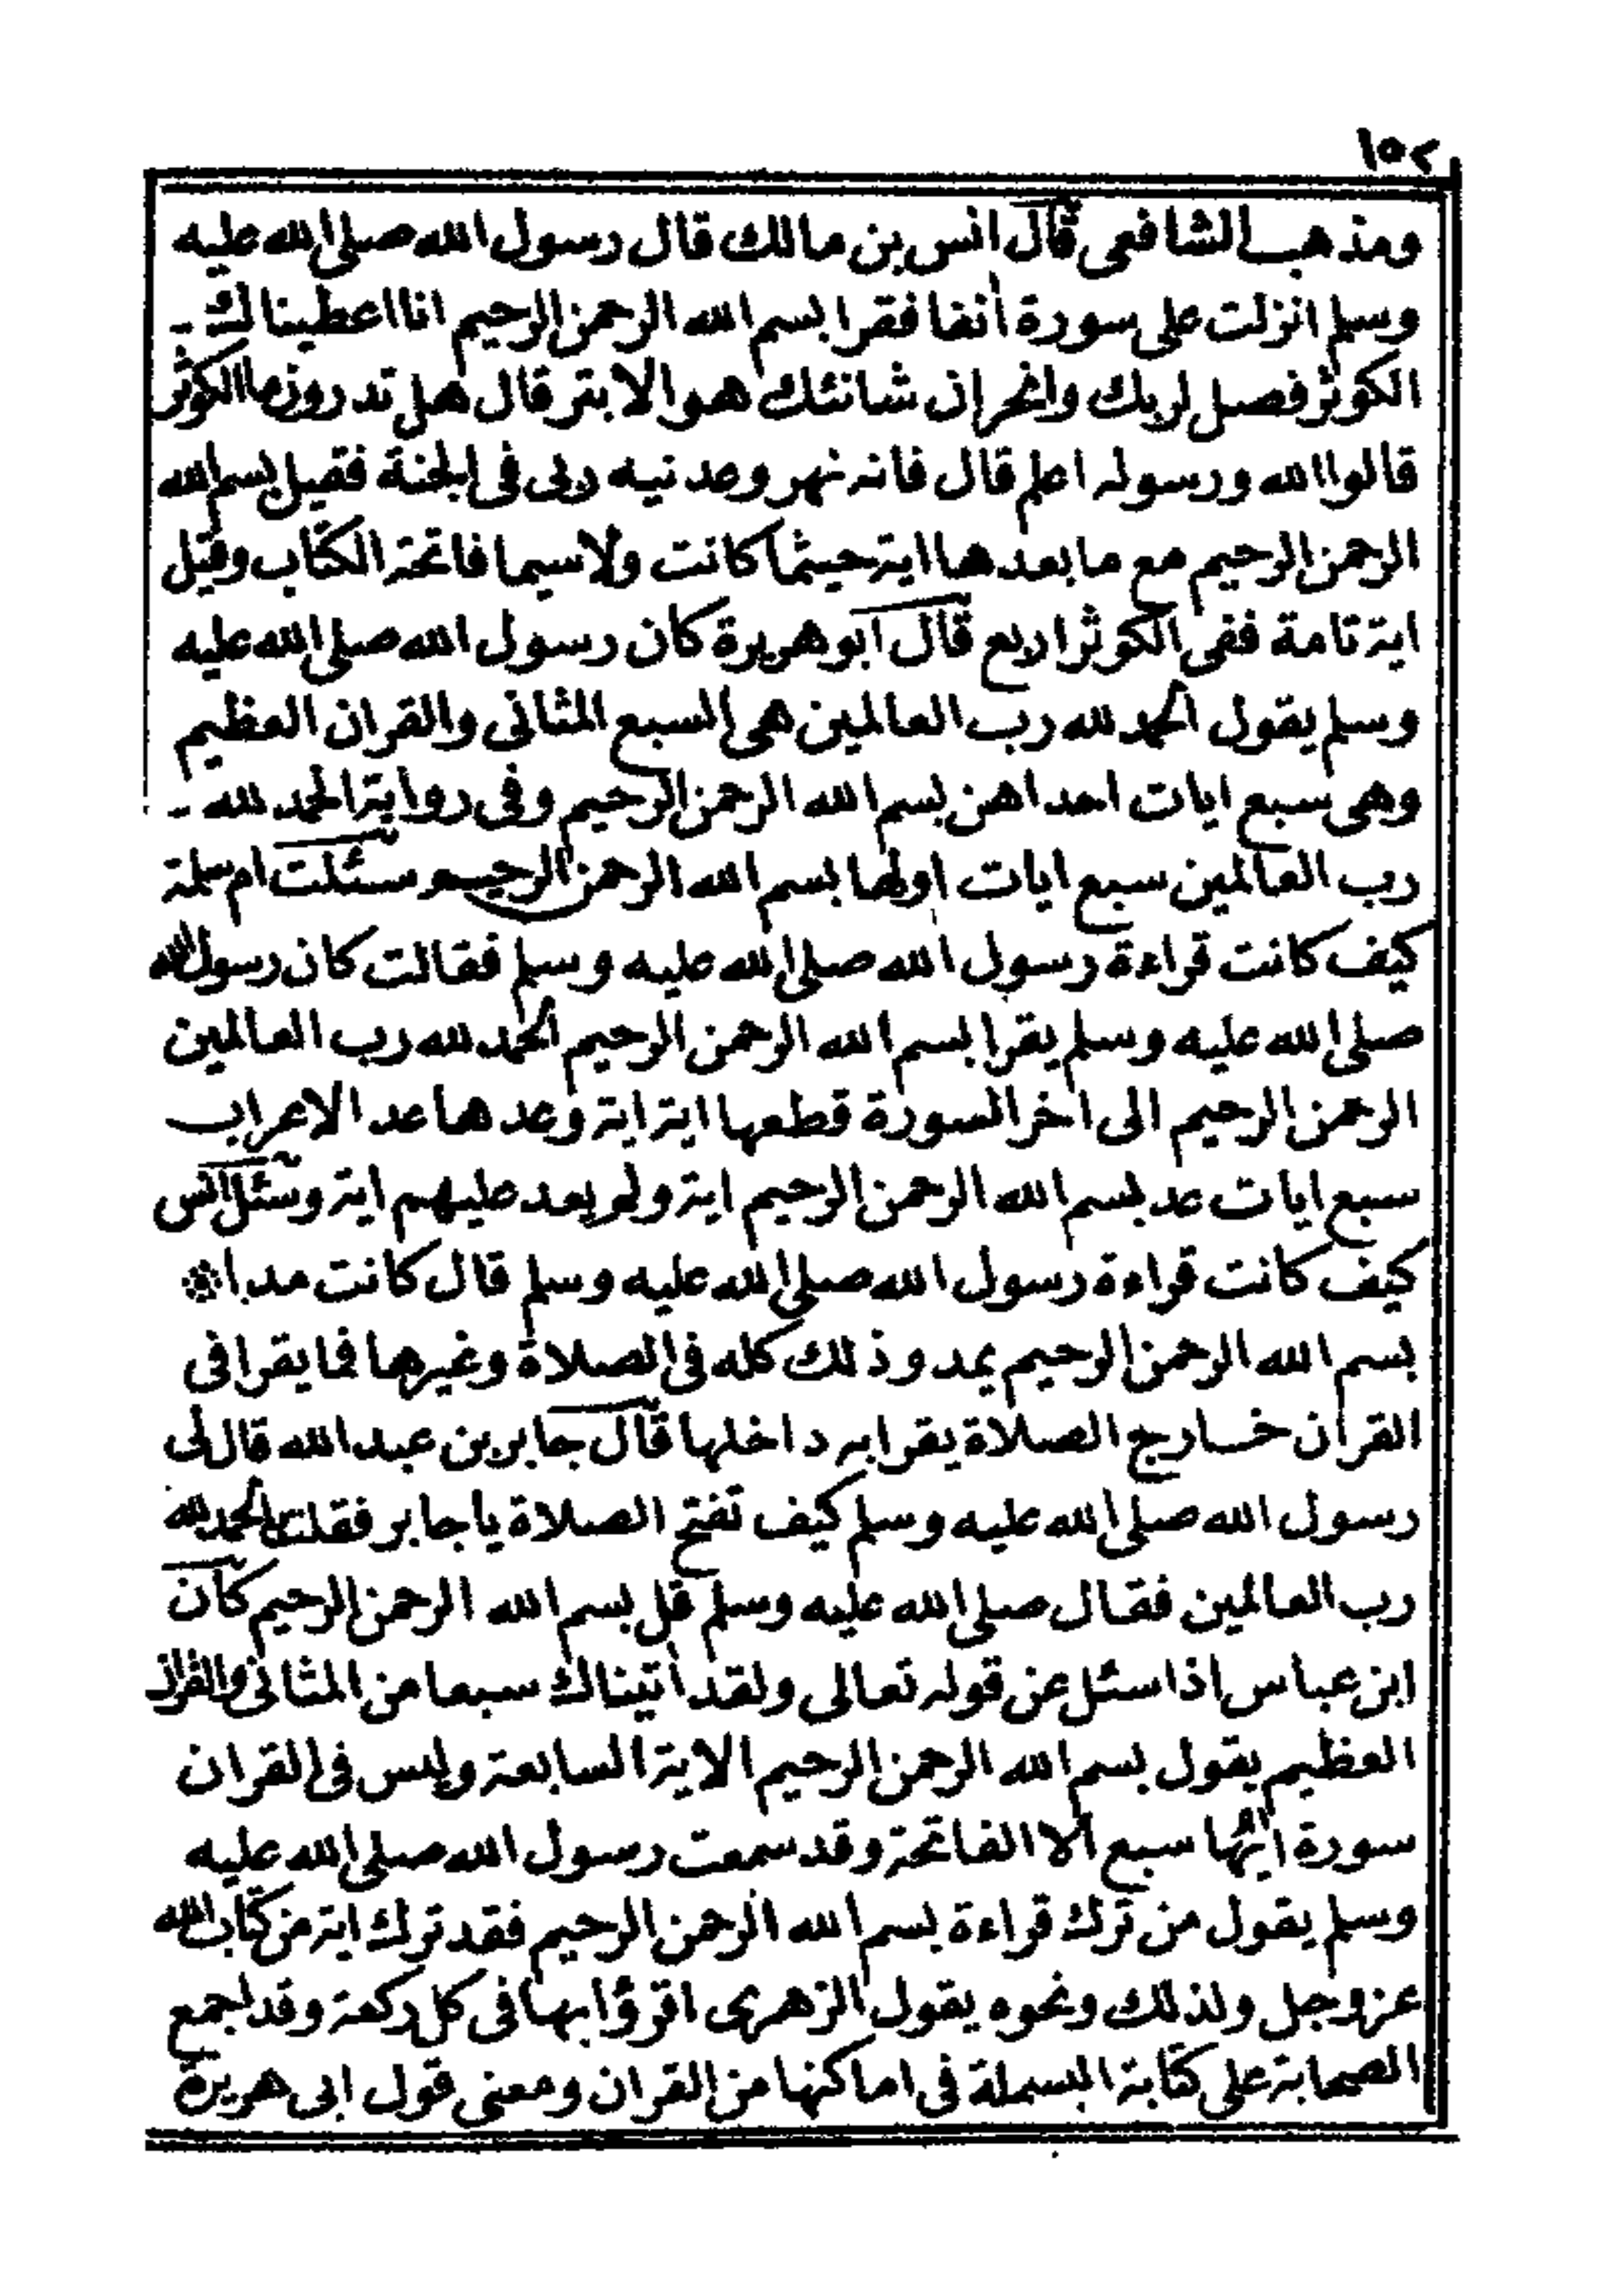 ١٥٢
ومذهب الشافعى قال انس بن مالك قال رسول الله صلى الله عليه
وسلم انزلت على سورة آنفا فقرا بسم الله الرحمن الرحيم انا اعطيناك
الكوثر فصل لربك وانحر ان شانئك هو الابتر قال هل تدرون ما الكوثر
قالوا الله ورسوله اعلم قال فانه نهر وعدنيه ربى فى الجنة فقيل بسم الله
الرحمن الرحيم مع ما بعدها اية حيثما كانت ولا سيما فاتحة الكتاب وقيل
اية تامة ففى الكوثر اربع قال ابو هريرة كان رسول الله صلى الله عليه
وسلم يقول الحمد لله رب العالمين هى السبع المثانى والقران العظيم
وهى سبع ايات احداهن بسم الله الرحمن الرحيم وفى رواية الحمد لله
رب العالمين سبع ايات اولها بسم الله الرحمن الرحيم وسئلت ام سلمة
كيف كانت قراءة رسول الله صلى الله عليه وسلم فقالت كان رسول الله
صلى الله عليه وسلم يقرا بسم الله الرحمن الرحيم الحمد لله رب العالمين
الرحمن الرحيم الى اخر السورة قطعها اية اية وعدها عد الاعراب
سبع ايات عد بسم الله الرحمن الرحيم اية ولم يعد عليهم اية وسئل انس
كيف كانت قراءة رسول الله صلى الله عليه وسلم قال كانت مدا ۞
بسم الله الرحمن الرحيم يمد وذلك كله فى الصلاة وغيرها فما يقرا فى
القران خارج الصلاة يقرا به داخلها قال جابر بن عبد الله قال لى
رسول الله صلى الله عليه وسلم كيف تفتح الصلاة يا جابر فقلت الحمد لله
رب العالمين فقال صلى الله عليه وسلم قل بسم الله الرحمن الرحيم كان
ابن عباس اذا سئل عن قوله تعالى ولقد آتيناك سبعا من المثانى والقران
العظيم يقول بسم الله الرحمن الرحيم الاية السابعة وليس فى القران
سورة آيها سبع الا الفاتحة وقد سمعت رسول الله صلى الله عليه
وسلم يقول من ترك قراءة بسم الله الرحمن الرحيم فقد ترك اية من كتاب الله
عز وجل ولذلك ونحوه يقول الزهرى اقرؤا بها فى كل ركعة وقد اجمع
الصحابة على كتابة البسملة فى اماكنها من القران ومعنى قول ابى هريرة